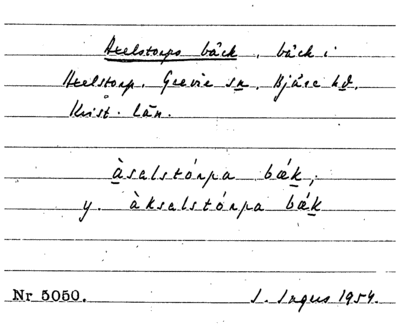 Axelstorps bäck, bäck i
Axelstorp, Grevie sn, Bjäre hd,
Krist. län.
àsalstórpa bǽk;
y. àksalstórpa bǽk
Nr 5050. I. Ingers 1954.